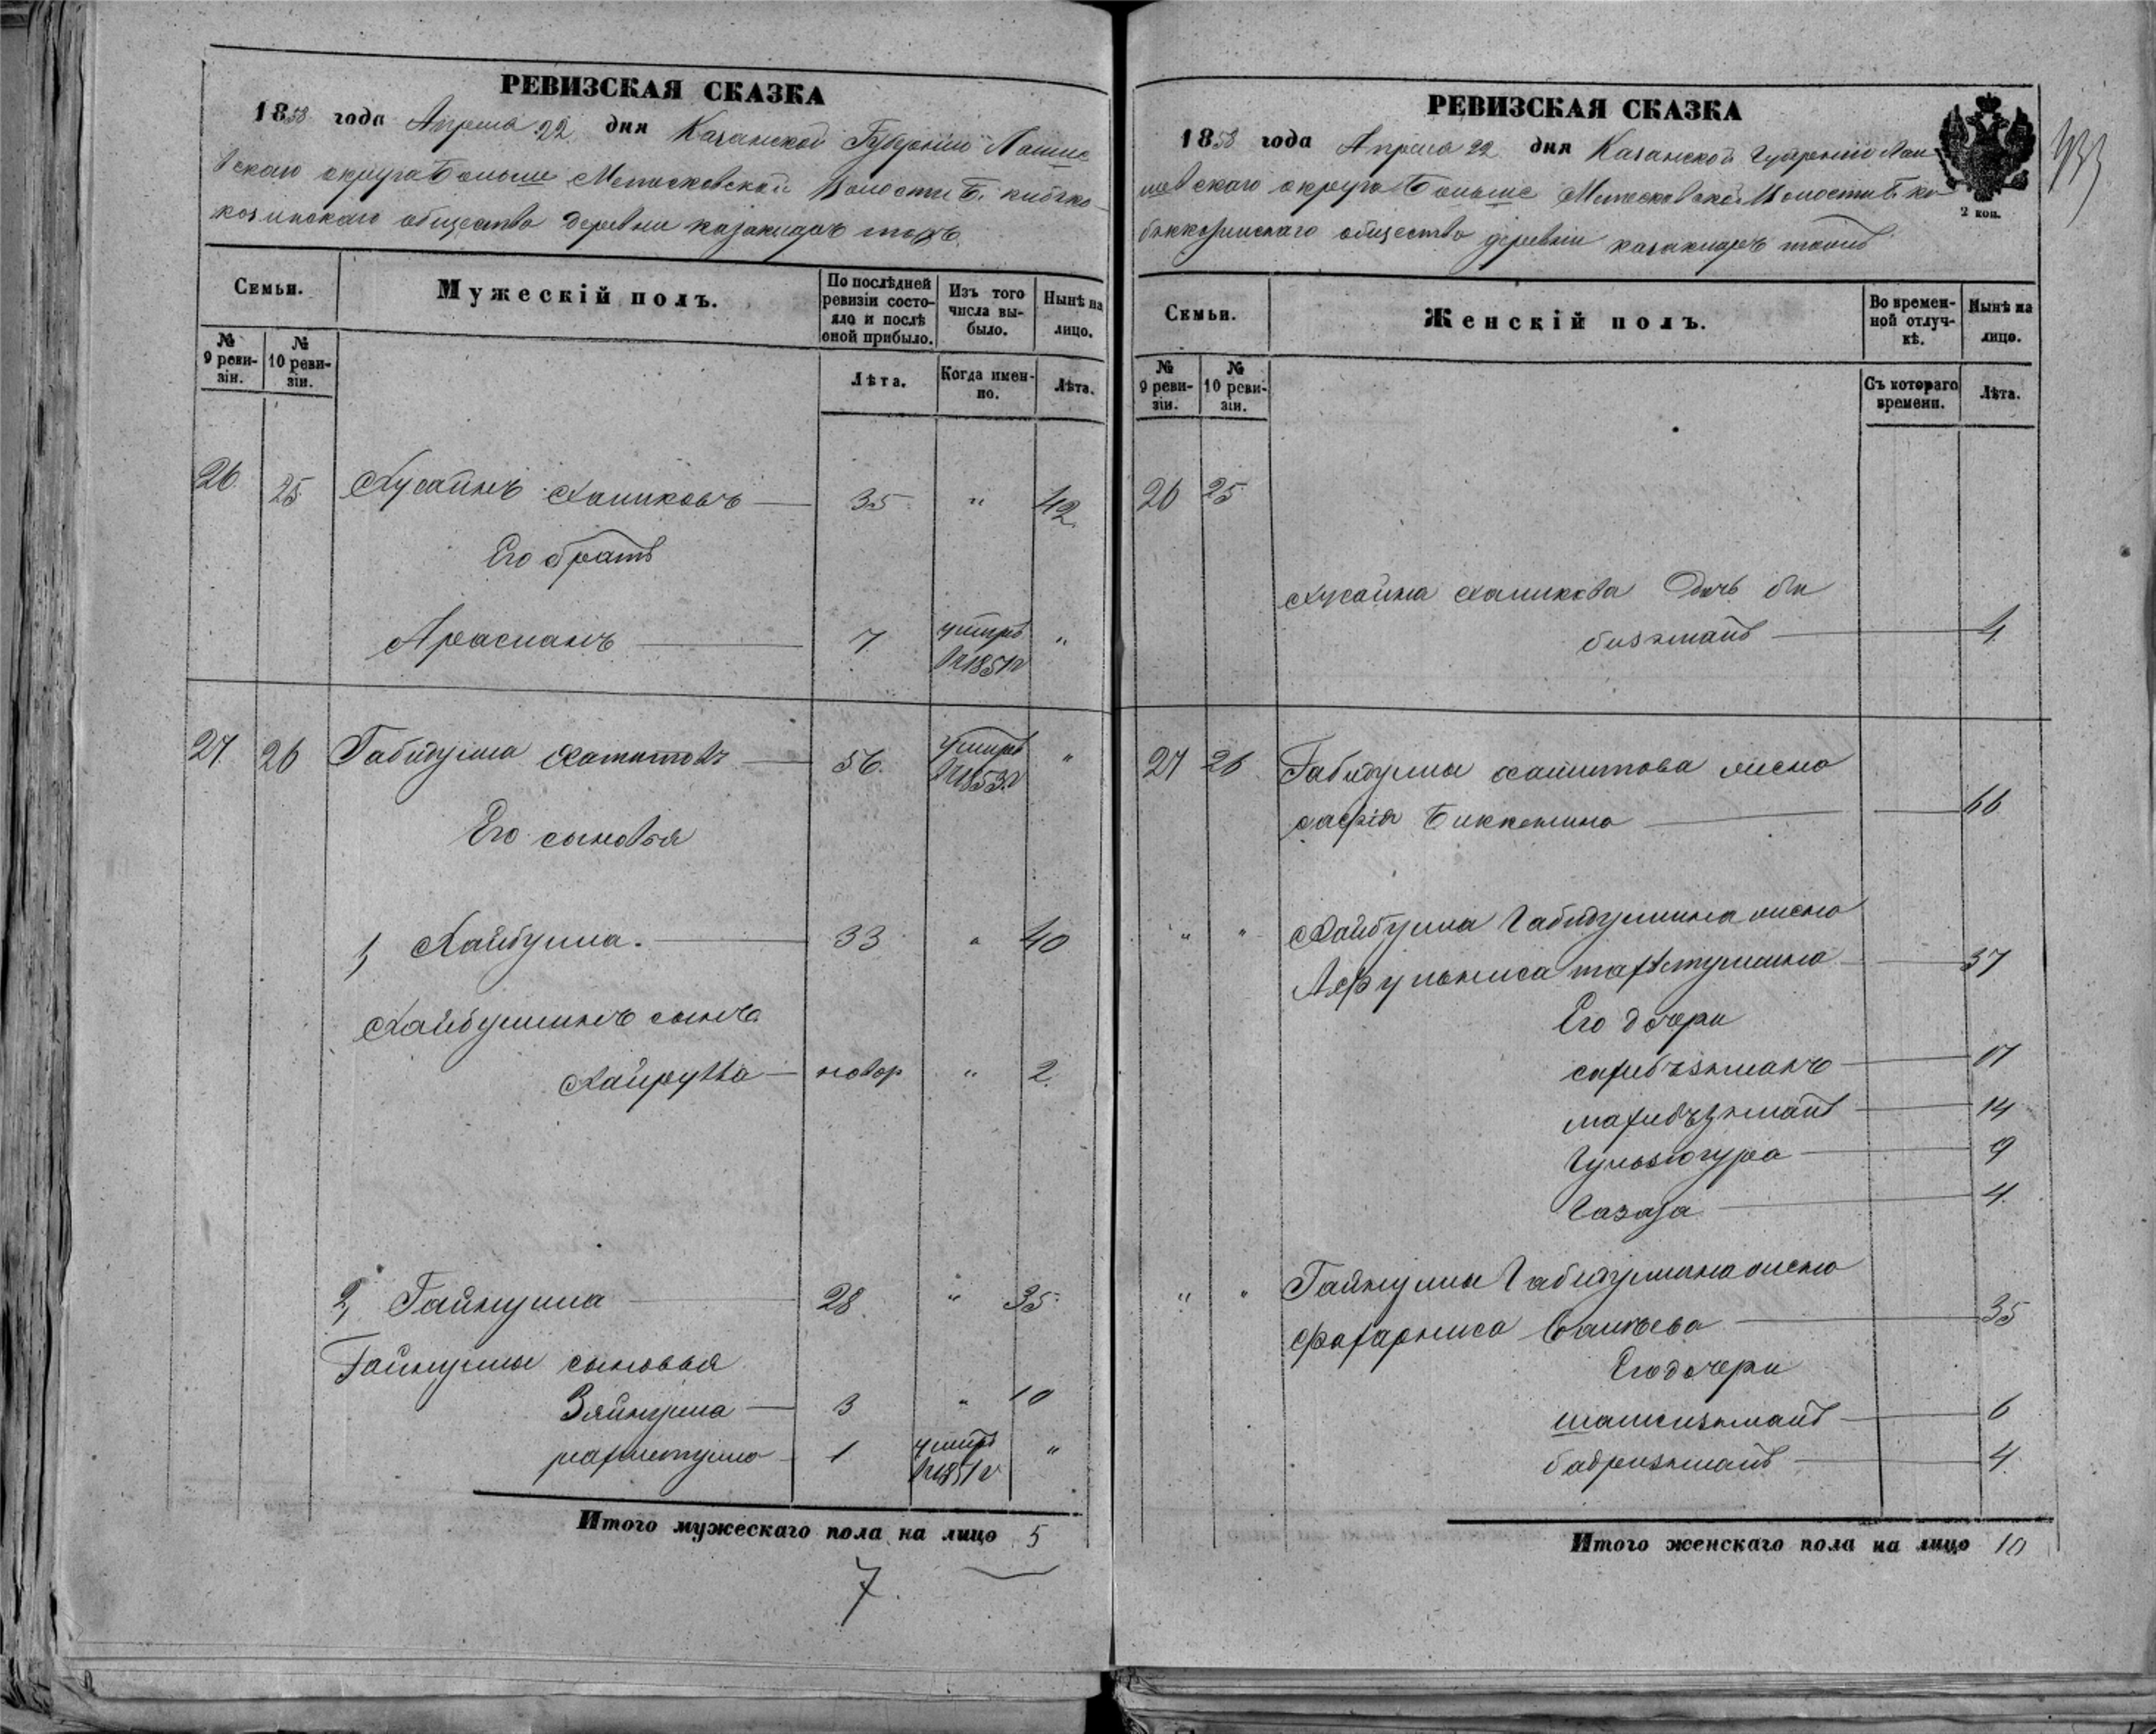 РЕВИЗСКАЯ СКАЗКА
1858 года Апреля 22 дня Казанской Губернiи Лаише
вскаго округа Больше Метесковской Волости Б. кибяко
козинскаго общества деревни казакларъ тожъ
Семьи.
Мужескiй полъ.
По послѣдней ревизiи состояло и послѣ оной прибыло.
Изъ того числа выбыло.
Нынѣ на лицо.
№ 9 ревизiи.
№ 10 ревизiи.
Лѣта.
Когда именно.
Лѣта.
26. 25 Хусаинъ Халиковъ 35 " 42.
Его братъ
Арасланъ 7 умеръ в 1851 г "
27. 26 Габидулла Хамитовъ 56. умеръ в 1853 г "
Его сыновья
1, Хайбулла. 33 " 40
Хайбуллинъ сынъ
Хайрутта новор " 2.
2, Гайнулла 28 " 35.
Гайнуллы сыновья
Зяйнулла 3 " 10
рахметулла 1 умеръ в 1851 г "
Итого мужескаго пола на лицо 5
7.
РЕВИЗСКАЯ СКАЗКА
1858 года Апреля 22 дня Казанской Губернiи Лаи
шевскаго округа Больше Метесковской Волости Б. ки
общества деревнiи казакларъ тожъ
2 коп.
Семьи.
Женскiй полъ.
Во временной отлучкѣ.
Нынѣ на лицо.
№ 9 ревизiи.
№ 10 ревизiи.
Съ котораго времени.
Лѣта.
26 25
Хусаина Халикова Дочь би
бизямалъ 4.
27 26 Габидуллы хамитова жена
сафiя Биккенина 66
" " Хайбулла Габидуллина жена
37
Его дочери
17
14
9
4.
" " Гайнуллы Габидуллина жена
35
Его дочери
шамсизямалъ 6
бадризямалъ 4.
Итого женскаго пола на лицо 10